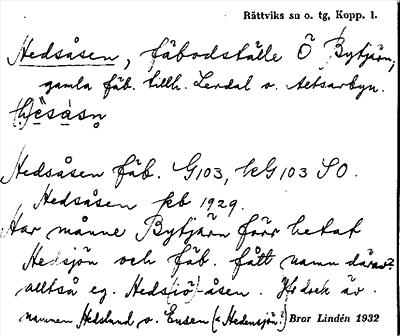 Rättviks sn o. tg, Kopp. l.
Hedsåsen, fäbodställe Ö Bytjärn,
gamla fäb. tillh. Lerdal o. Altsarbyn.
Hedsåsen fäb. G103, kG103 SO.
Hedsåsen kb 1929.
Har månne Bytjärn förr hetat
Hedsjön och fäb. fått namn därav?
alltså eg. Hedsjö)-åsen. Jfr dock äv.
namnen Hedsland o. Ensen (< Hedensjön? Bror Lindén 1932